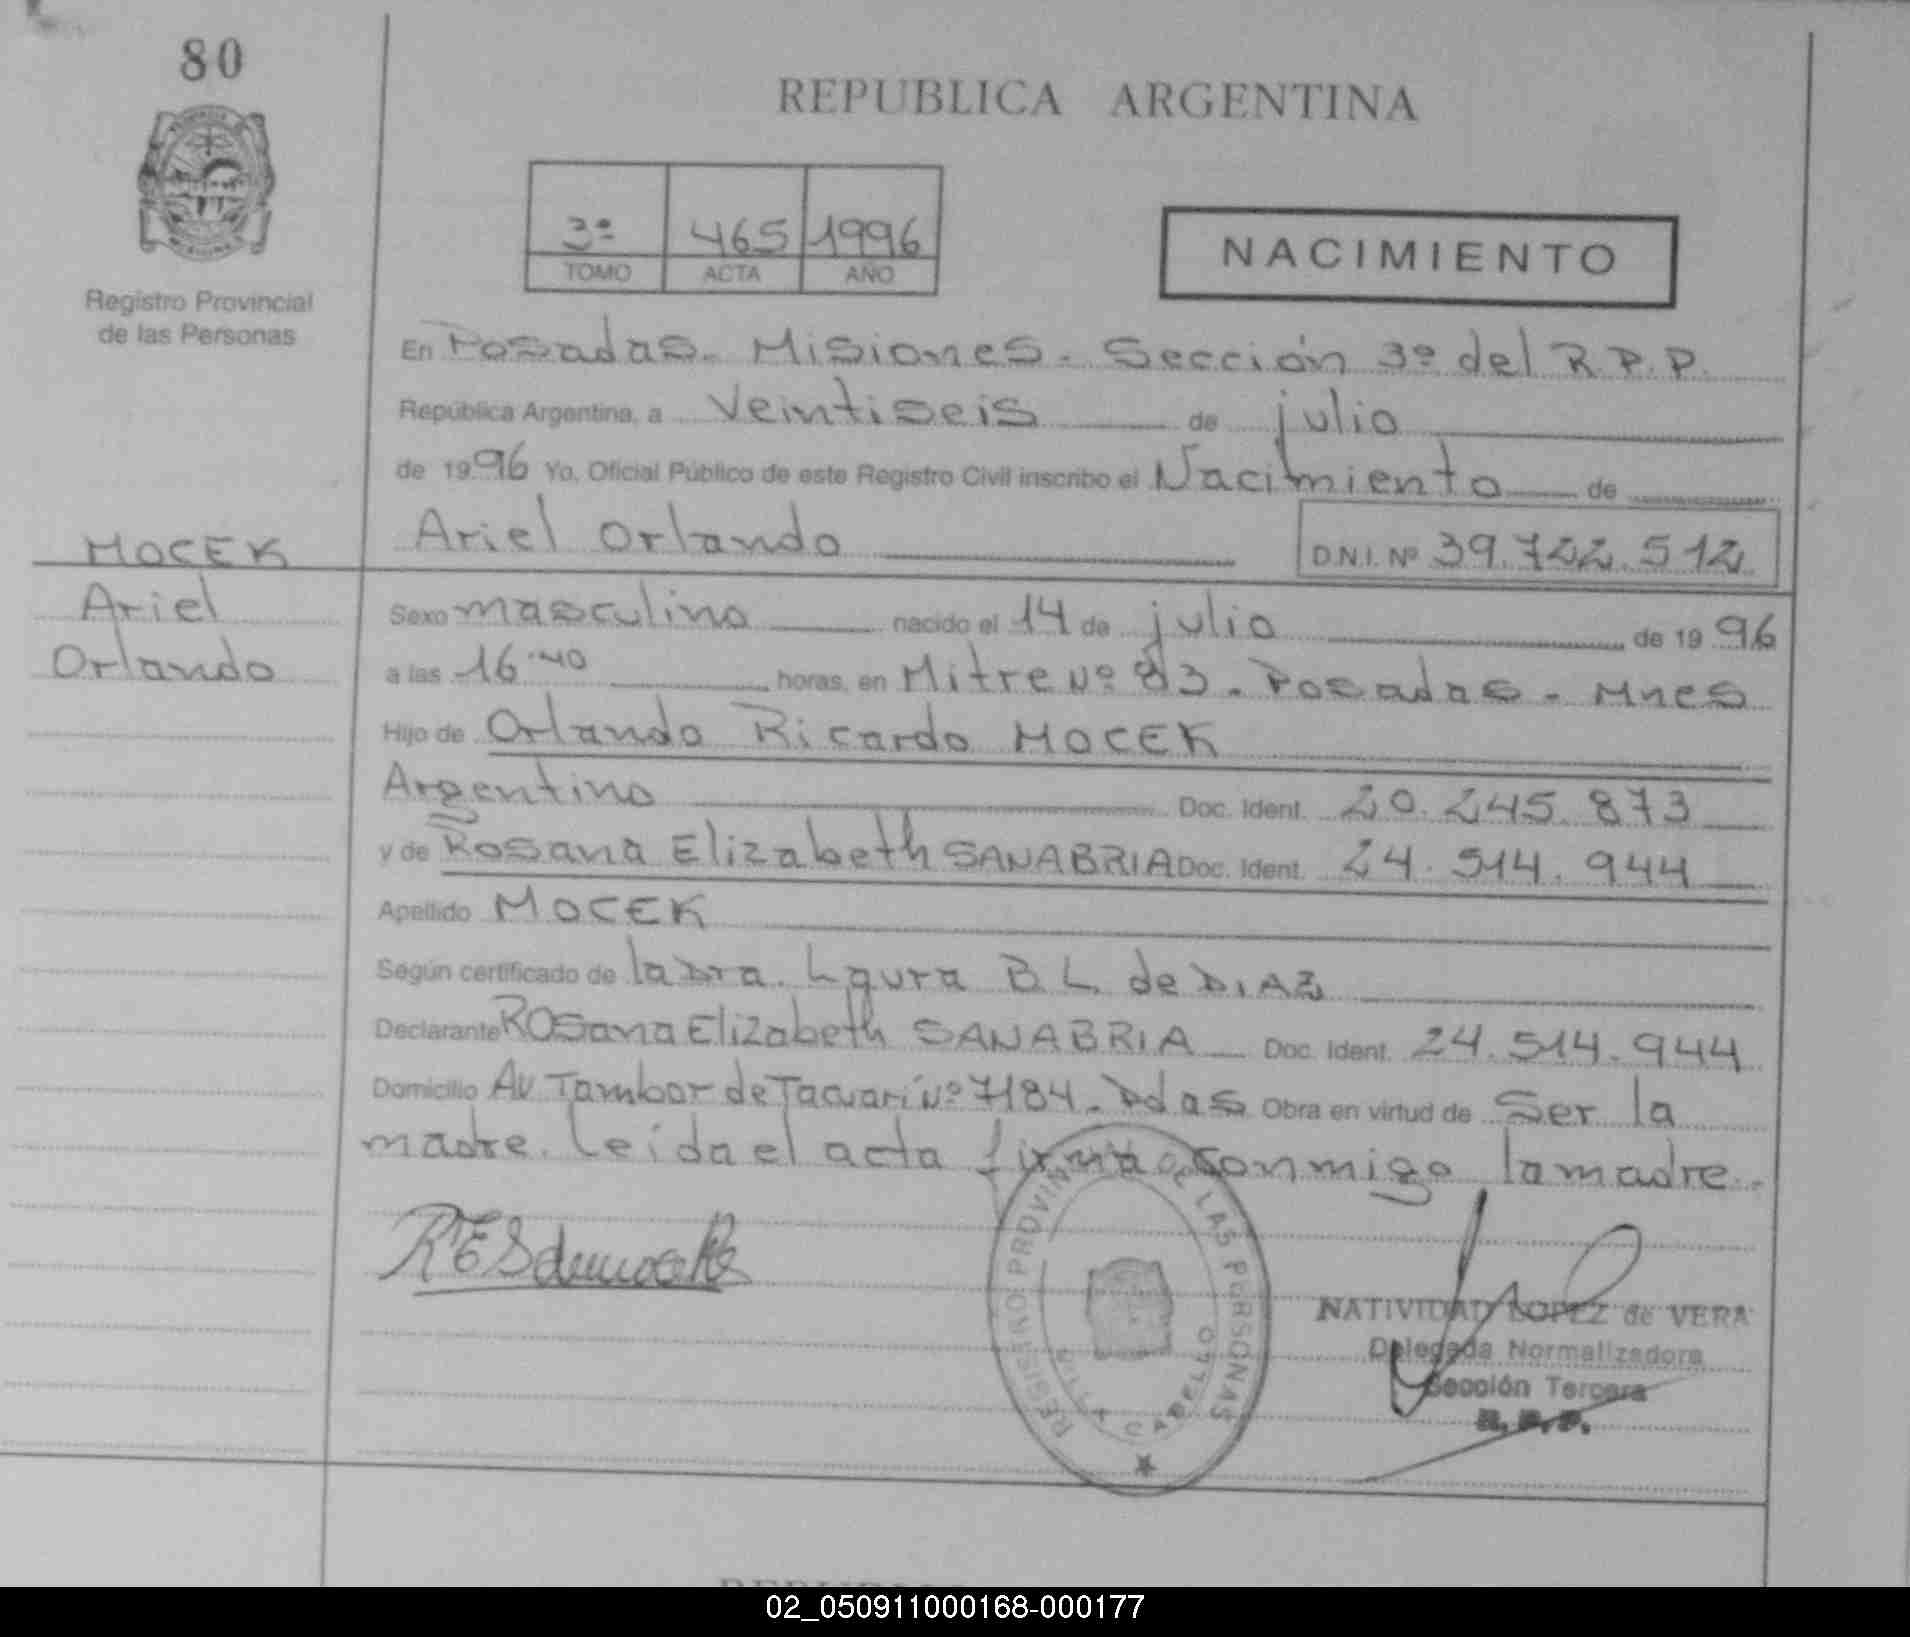 80
REPUBLICA ARGENTINA
3º 465 1996
TOMO ACTA AÑO
NACIMIENTO
Registro Provincial
de las Personas
En Posadas. Misiones. Sección 3º del R.P.P.
República Argentina, a Veintiseis de julio
de 1996 Yo, Oficial Público de este Registro Civil inscribo el Nacimiento de
Ariel Orlando D.N.I. Nº 39.722.512
MOCEK
Ariel
Orlando
Sexo masculino nacido el 14 de julio de 1996
a las 16.40 horas, en Mitre Nº 83. Posadas. Mnes
Hijo de Orlando Ricardo MOCEK
Argentino Doc. Ident. 20.245.873
y de Rosana Elizabeth SANABRIA Doc. Ident. 24.514.944
Apellido MOCEK
Según certificado de la Dra. Laura B L de DIAZ
Declarante Rosana Elizabeth SANABRIA Doc. Ident. 24.514.944
Domicilio Av Tambor de Tacuarí Nº 7184. Pdas Obra en virtud de Ser la
madre. Leída el acta firma conmigo la madre.
REGISTRO PROVINCIAL DE LAS PERSONAS
CABELLO
NATIVIDAD LOPEZ de VERA
Delegada Normalizadora
Sección Tercera
R.P.P.
02_050911000168-000177